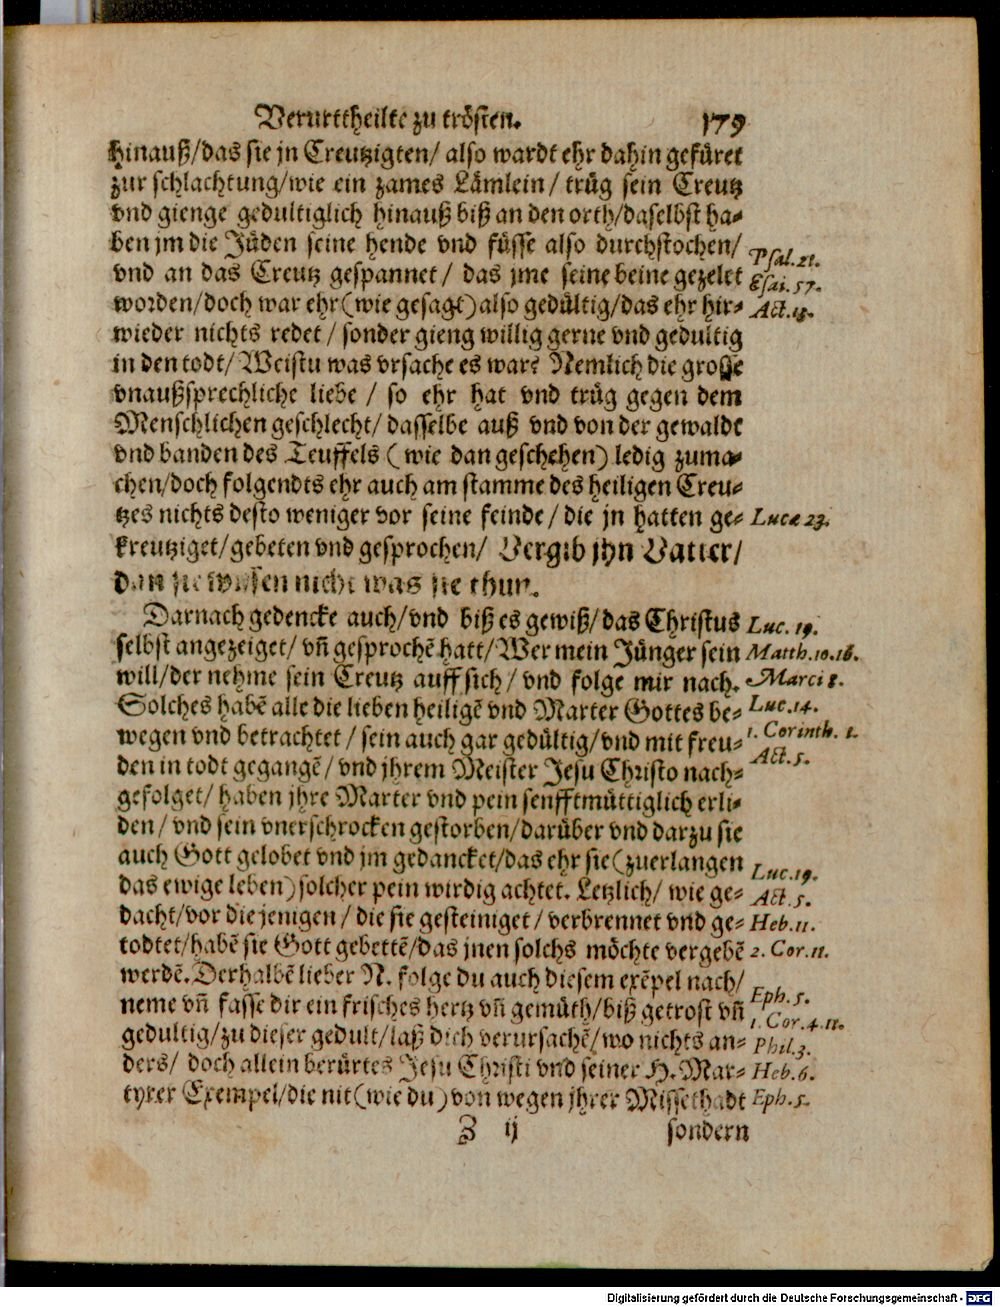 Verurttheilte zu trösten. 179
hinauß/das sie jn Creutzigten/ also wardt ehr dahin gefüret
zur schlachtung/wie ein zames Lämlein/ trüg sein Creutz
vnd gienge gedultiglich hinauß biß an den orth/daselbst ha-
ben jm die Jüden seine hende vnd füsse also durchstochen/
Psal. 21.
vnd an das Creutz gespannet/ das jme seine beine gezelet
Esai. 57.
worden/doch war ehr (wie gesagt) also gedültig/das ehr hir-
Act. 18.
wieder nichts redet/ sonder gieng willig gerne vnd gedultig
in den todt/ Weistu was vrsache es war? Nemlich die grosse
vnaußsprechliche liebe/ so ehr hat vnd trüg gegen dem
Menschlichen geschlecht/ dasselbe auß vnd von der gewaldt
vnd banden des Teuffels (wie dan geschehen) ledig zuma-
chen/doch folgendts ehr auch am stamme des heiligen Creu-
tzes nichts desto weniger vor seine feinde/ die jn hatten ge-
Lucæ 23.
kreutziget/gebeten vnd gesprochen/ Vergib jhn Vatter/
dan sie wissen nicht was sie thun.
Darnach gedencke auch/vnd biß es gewiß/das Christus
Luc. 19.
selbst angezeiget/ vñ gesprochẽ hatt/ Wer mein Jünger sein
Matth. 10. 16.
will/der nehme sein Creutz auff sich/ vnd folge mir nach.
Marci 8.
Solches habẽ alle die lieben heiligẽ vnd Marter Gottes be-
Luc. 14.
wegen vnd betrachtet/ sein auch gar gedültig/vnd mit freu-
1. Corinth. 1.
den in todt gegangẽ/ vnd jhrem Meister Jesu Christo nach-
Act. 5.
gefolget/ haben jhre Marter vnd pein senfftmüttiglich erli-
den/ vnd sein vnerschrocken gestorben/darüber vnd darzu sie
auch Gott gelobet vnd jm gedancket/das ehr sie (zuerlangen
Luc. 19.
das ewige leben) solcher pein wirdig achtet. Letzlich/ wie ge-
Act. 5.
dacht/vor die jenigen/ die sie gesteiniget/ verbrennet vnd ge-
Heb. 11.
todtet/habẽ sie Gott gebettẽ/das jnen solchs möchte vergebẽ
2. Cor. 11.
werdẽ. Derhalbẽ lieber N. folge du auch diesem exẽpel nach/
Eph. 5.
neme vñ fasse dir ein frisches hertz vñ gemüth/biß getrost vñ
1. Cor. 4. 11.
gedultig/zu dieser gedult/laß dich verursachẽ/wo nichts an-
Phil. 3.
ders/ doch allein berürtes Jesu Christi vnd seiner H. Mar-
Heb. 6.
tyrer Exempel/die nit (wie du) von wegen jhrer Missethadt
Eph. 5.
Z ij sondern
Digitalisierung gefördert durch die Deutsche Forschungsgemeinschaft - DFG